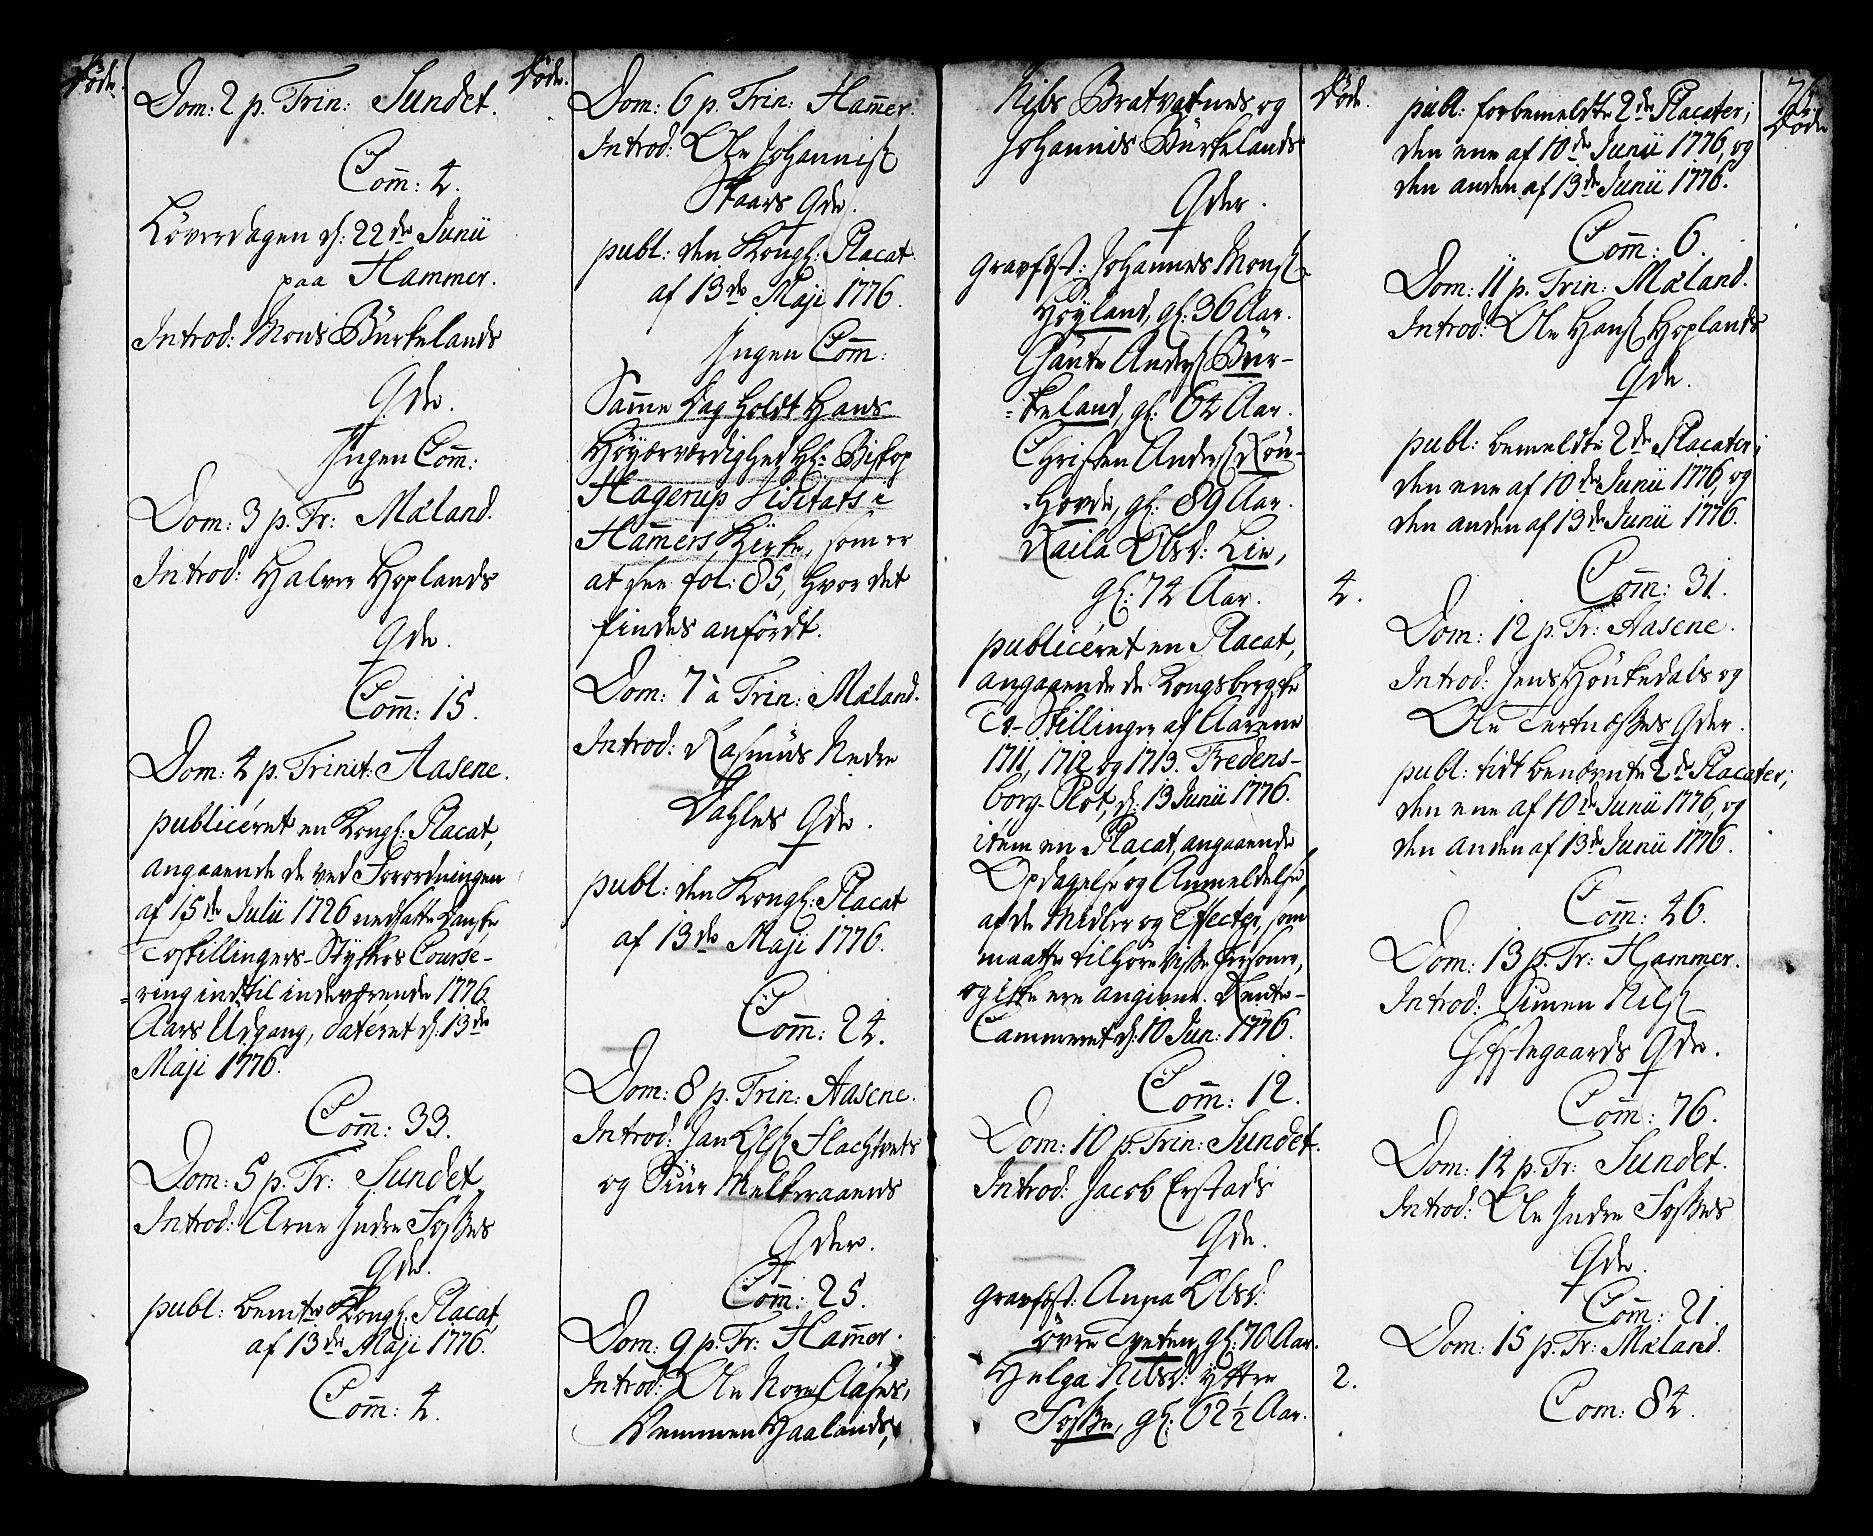 Døde.
Dom: 2 p. Trin: Sundet.
Com̄: 4.
Løverdagen d: 22de Junii
paa Hammer.
Introd: Mons Bürkelands
Qde.
Ingen Com̄:
Dom: 3 p. Tr: Mæland.
Introd: Halvor Hoplands
Qde.
Com̄: 15.
Dom: 4 p. Trinit: Aasene.
publicéret en Kongl: Placat,
angaaende de ved Forordningen
af 15de Julii 1726 nedsatte Danske
Toskillingers-Stykkers Course-
=ring indtil indeværende 1776
Aars Udgang, datéret d: 13de
Maji 1776.
Com̄: 33.
Dom: 5 p. Tr: Sundet
Introd: Arne Indre Fosses
Qde.
publ: bemte Kongl: Placat
af 13de Maji 1776.
Com̄: 4.
Døde.
Dom: 6 p. Trin: Ham̄er.
Introd: Ole Johanniss
Skaars Qde.
publ: den Kongl: Placat
af 13de Maji 1776.
Ingen Com̄:
Sam̄e Dag holdt Hans
Høyærværdighed Hr: Biskop
Hagerup Visitats i
Ham̄ers Kirke, som er
at see fol: 85, hvor det
findes anfördt.
Dom: 7 à Trin: Mæland.
Introd: Rasmüs Nedre
Dahles Qde.
publ: den Kongl: Placat
af 13de Maji 1776.
Com̄: 24.
Dom: 8 p. Trin: Aasene.
Introd: Jan Ols Flachtvets
og Siur Melkeraaens
Qder.
Com̄: 25.
Dom: 9 p. Tr: Ham̄er.
Introd: Ole Nore Aases,
Vemmen Haalands,
Nils Bratvætnes og
Johannis Bürkelands
Qder.
Gravfæst: Johannes Mons
Høyland, gl: 36 Aar.
Gaute Anders Bür-
=keland, gl: 64 Aar.
Christen Anders Røn-
=hovde, gl: 89 Aar.
Raila Olsd: Lie,
gl: 74 Aar.
publicéret en Placat,
angaaende de Kongsbergske
To-Skillinger af Aarene
1711, 1712 og 1713. Fredens-
borg-Slot, d: 13 Junii 1776.
item en Placat, angaaende
Opdagelse og Anmeldelse
af de Midler og Effecter, som
maatte tilhøre visse Personer,
og ikke ere angivne. Rente-
Cammeret d: 10 Jun: 1776.
Com̄: 12.
Dom: 10 p. Trin: Sundet.
Introd: Jacob Erstads
Qde.
Gravfæst: Anna Olsd:
Øvre Tveten, gl: 70 Aar.
Helga Nilsd: Yttre
Fosse, gl: 62½ Aar.
Døde.
4.
2.
publ: forbemeldte 2de Placater;
den ene af 10de Junii 1776, og
den anden af 13de Junii 1776.
Com̄: 6.
Dom: 11 p. Trin: Mæland.
Introd: Ole Hans Hoplands
Qde.
publ: bemeldte 2de Placater;
den ene af 10de Junii 1776, og
den anden af 13de Junii 1776.
Com̄: 31.
Dom: 12 p. Tr: Aasene.
Introd: Jens Hönkedals og
Ole Tertnæsses Qder.
publ: tidt benævnte 2de Placater;
den ene af 10de Junii 1776, og
den anden af 13de Junii 1776.
Com̄: 46.
Dom: 13 p. Tr: Hammer.
Introd: Simen Nils
Giestegaards Qde.
Com̄: 76.
Dom: 14 p. Tr: Sundet.
Introd: Ole Indre Fosses
Qde.
Com̄: 21.
Dom: 15 p. Tr: Mæland.
Com: 84.
Døde